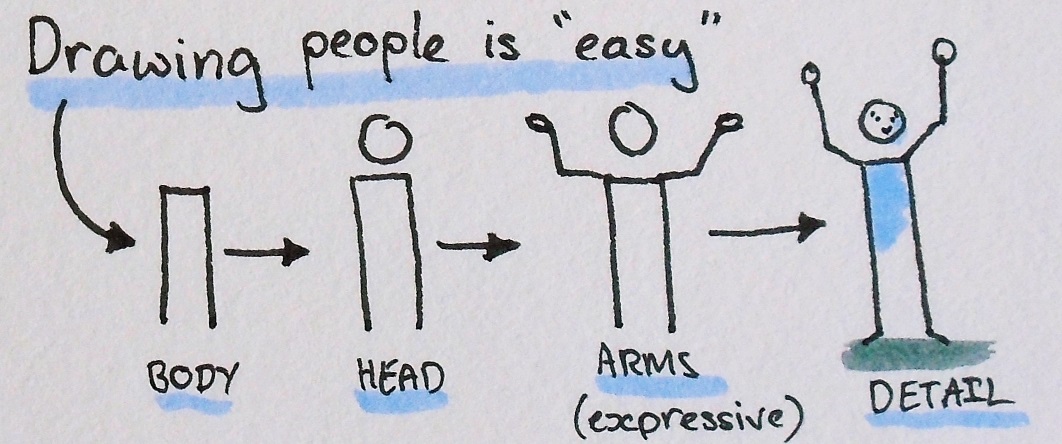 Drawing people is "easy"
BODY
HEAD
ARMS
(expressive)
DETAIL